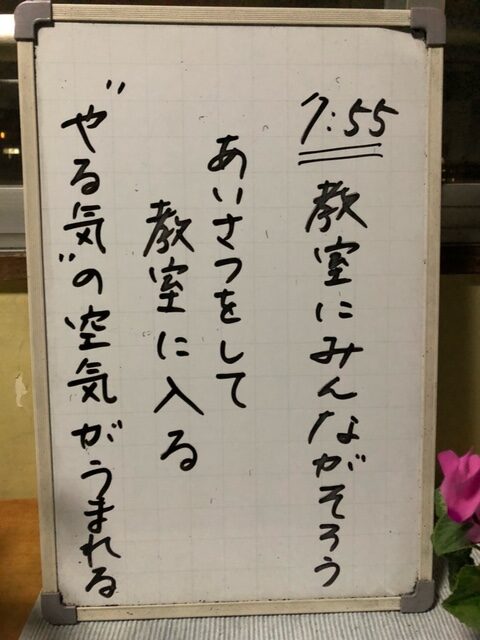 7:55
教室にみんながそろう
あいさつをして
教室に入る
"やる気"の空気がうまれる